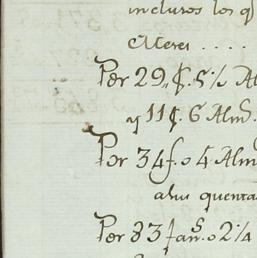 incluros los q
Per 29,, ₵. 5 ½ Al
y 11 ₵. 6 Alm.
Por 34 f. o 4 Alm
alm quenta
Per 83 fan.s o 2 ¼